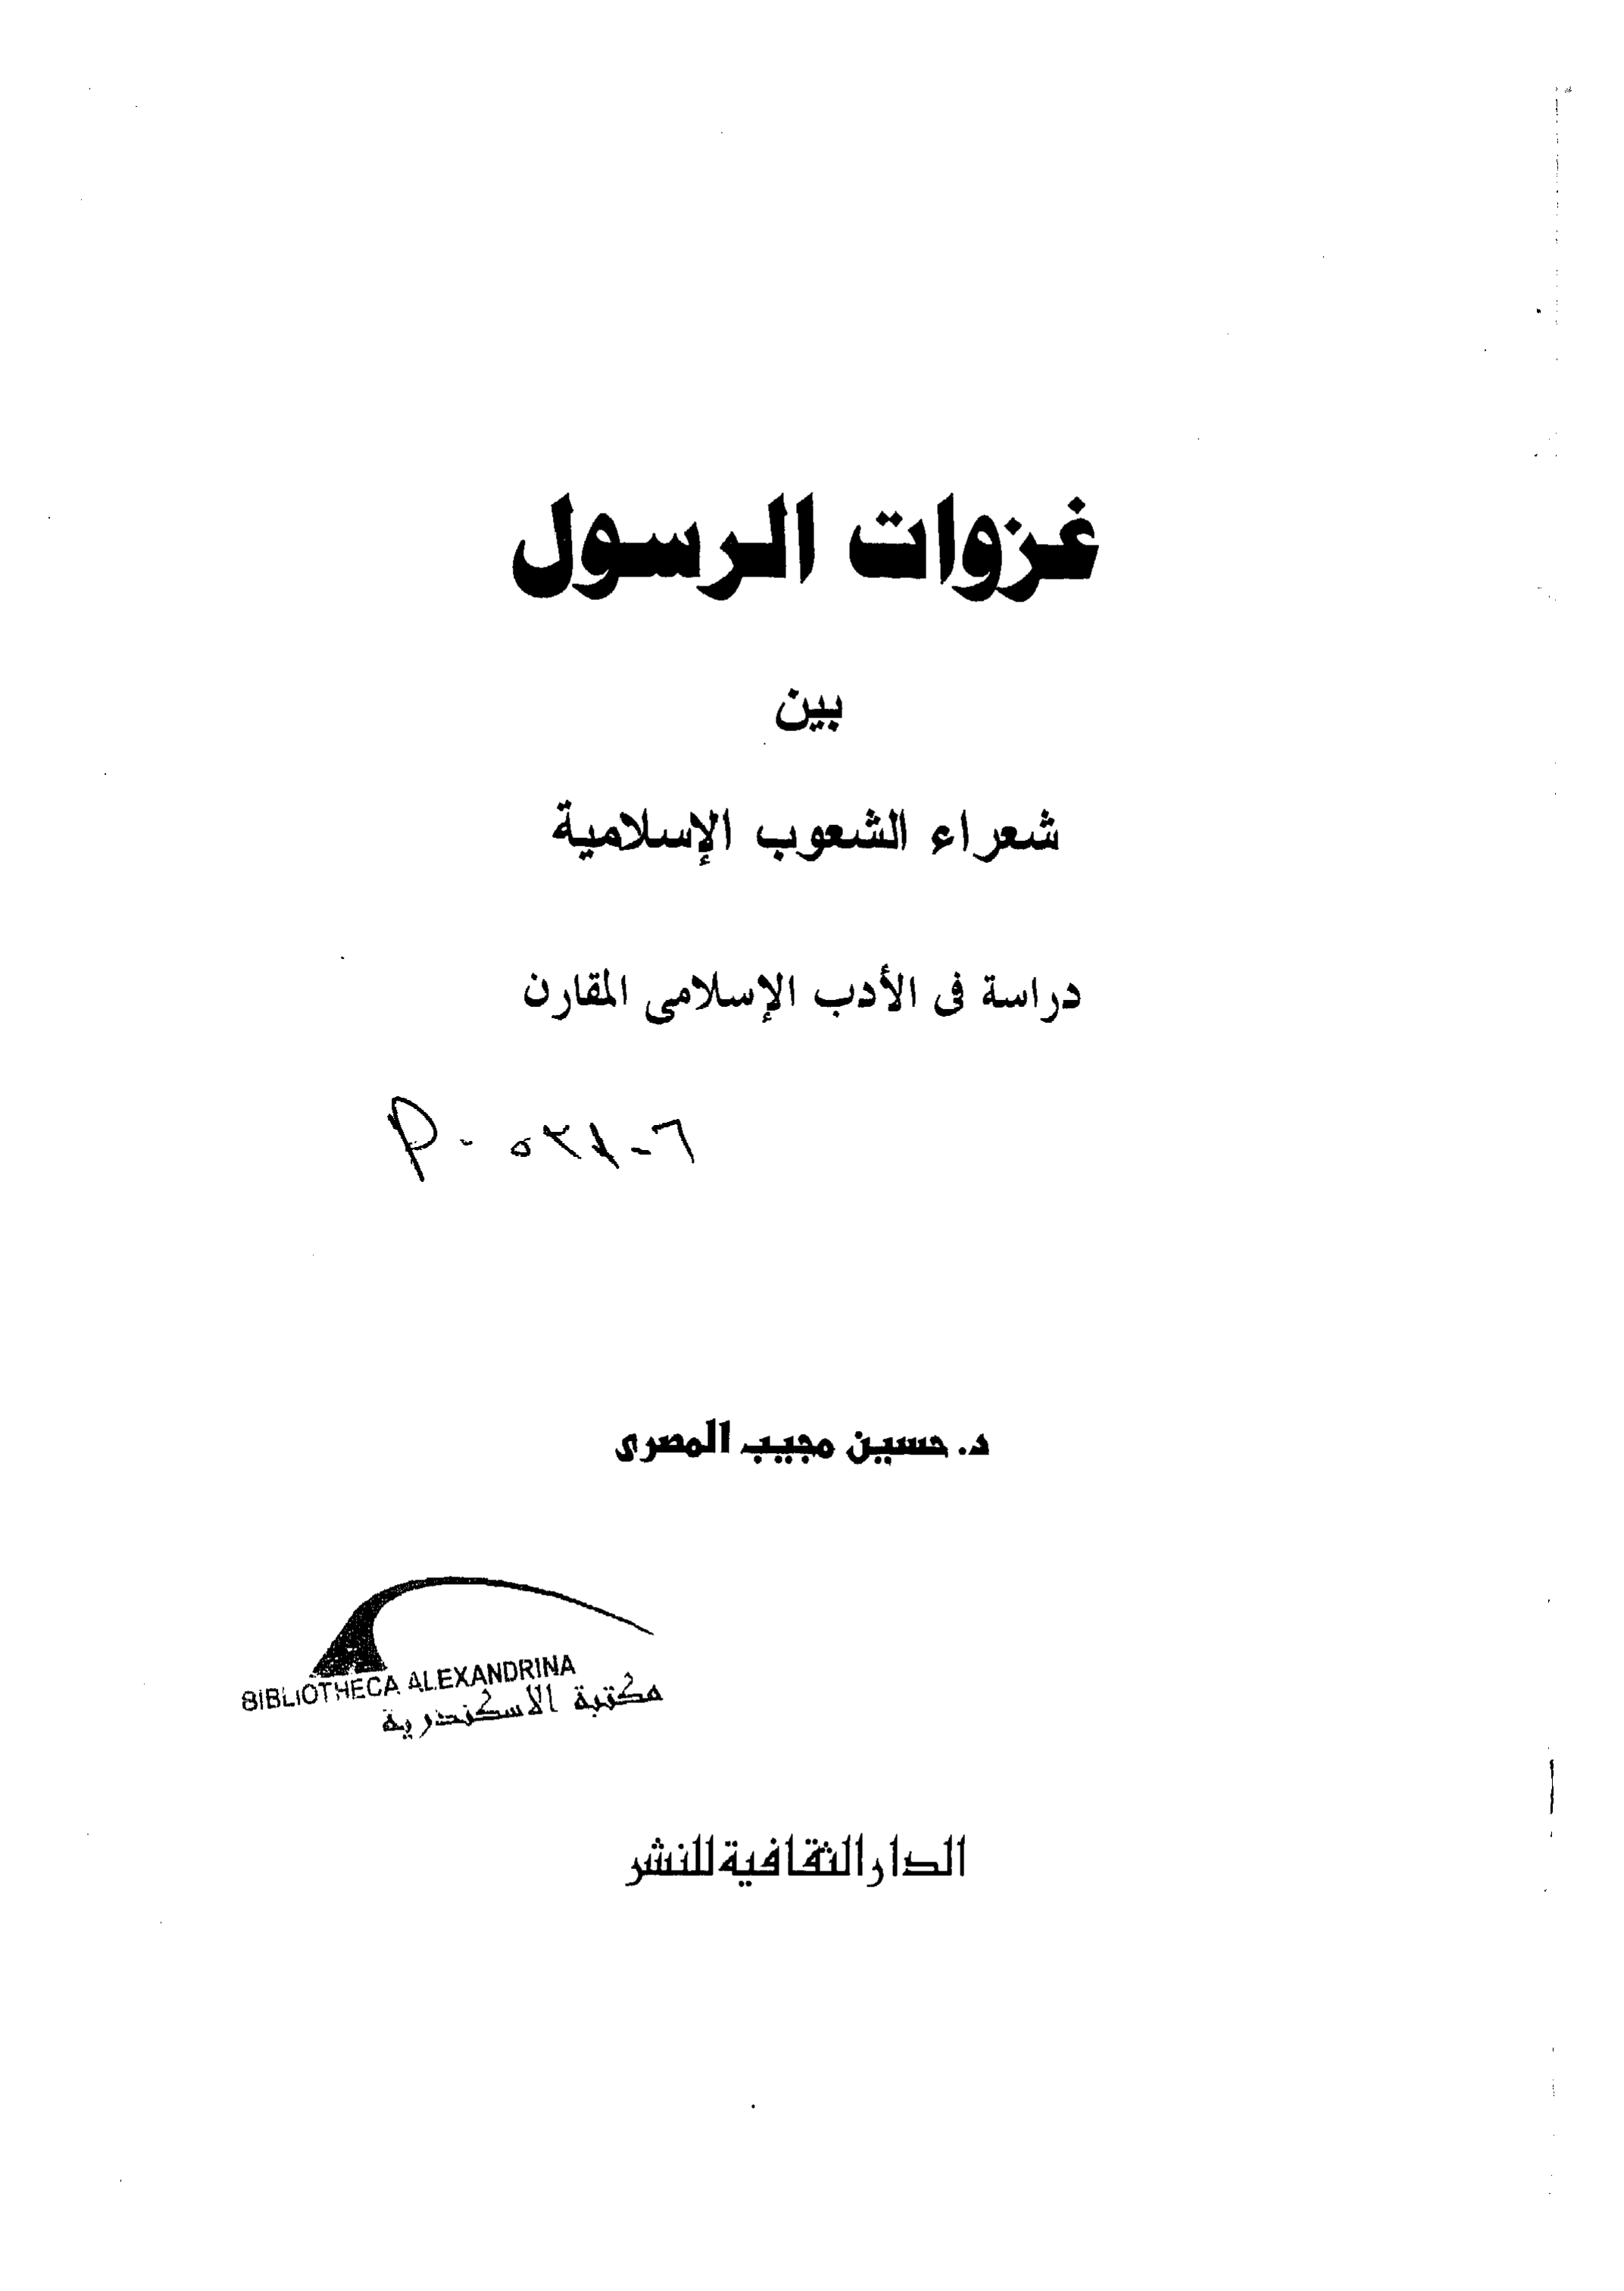 غزوات الرسول
بين
شعراء الشعوب الإسلامية
دراسة فى الأدب الإسلامى المقارن
د. حسين مجيب المصرى
BIBLIOTHECA ALEXANDRINA
مكتبة الاسكندرية
الدار الثقافية للنشر